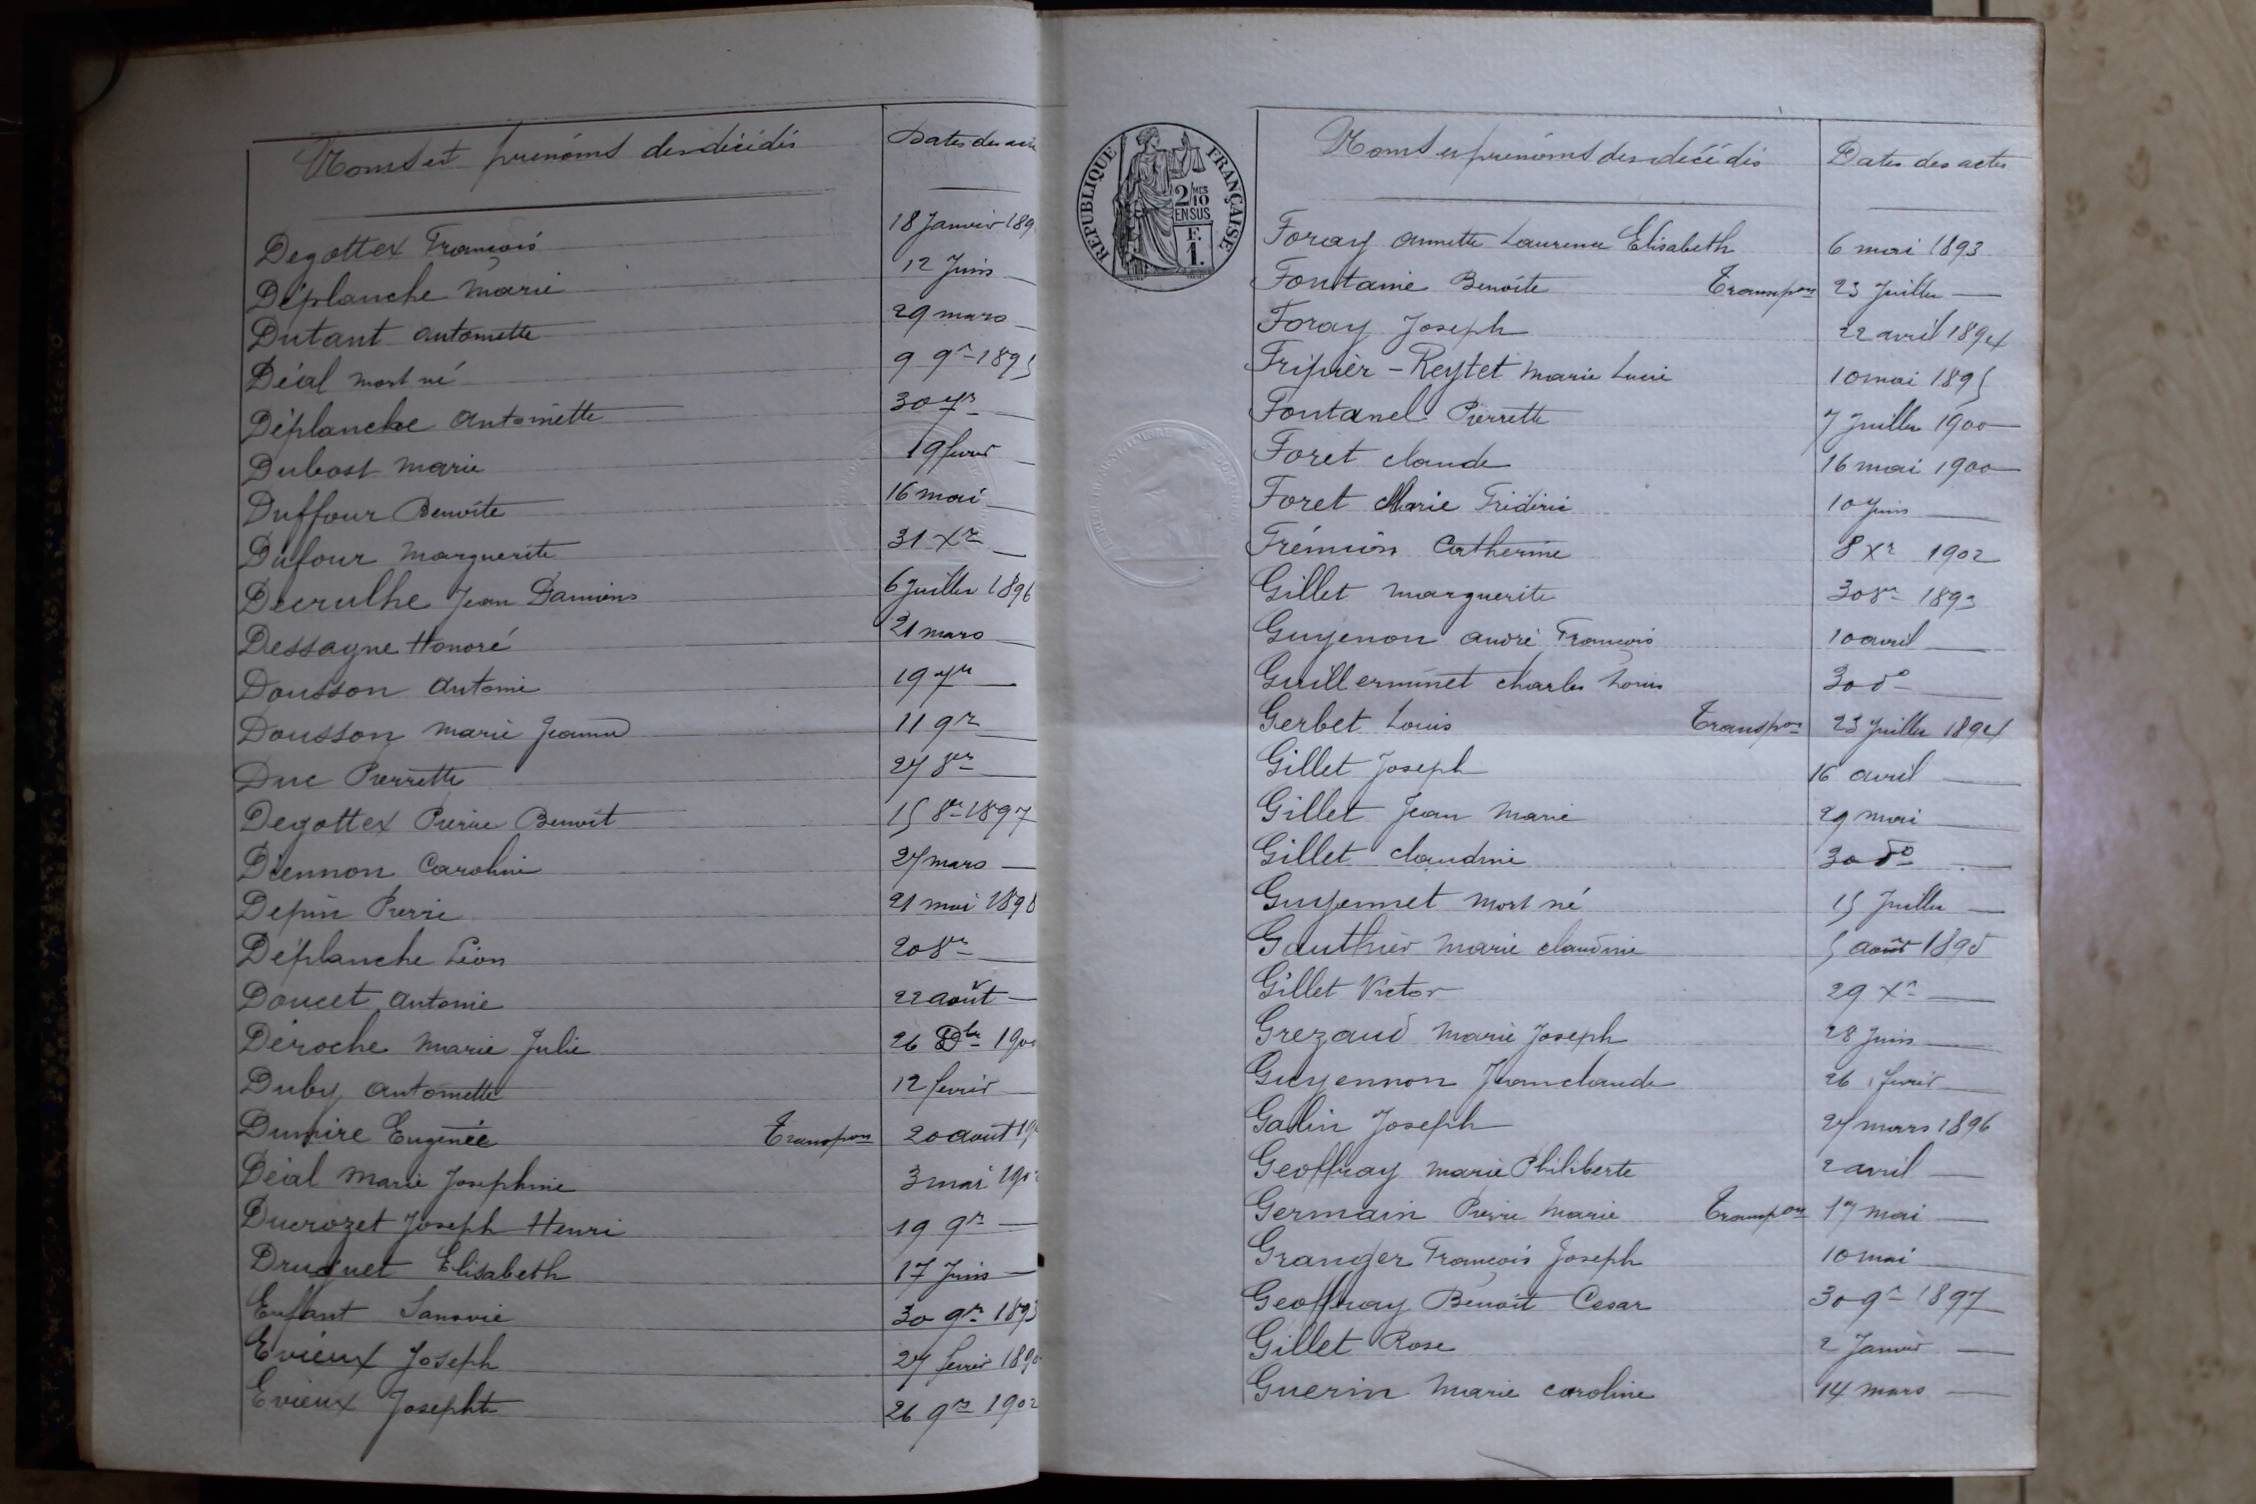 Noms et prénoms des décédés Dates des
Degottex François 18 Janvier 189
Déplanche Marie 12 Juin —
Dutant Antoinette 29 mars —
Déal mort né 9 9re 1895
Déplanche Antoinette 30 7re —
Dubost Marie 19 fevrier —
Duffour Benoite 16 mai —
Dufour Marguerite 31 Xre —
Decrulhe Jean Damiens 6 Juillet 1896
Dessayne Honoré 21 mars —
Dousson Antoine 19 7re —
Dousson Marie Jeanne 11 9re —
Duc Pierrette 27 8re —
Degottex Pierre Benoit 15 8re 1897
Diennon Caroline 27 mars —
Depin Pierre 21 mai 1898
Déplanche Léon 20 8re —
Doucet Antonie 22 août —
Déroche Marie Julie 26 Dbre 190
Duby Antoinette 12 fevrier —
Dumire Eugénie Transpon 20 aout 19
Déal Marie Josephine 3 mai 190
Ducrozet Joseph Henri 19 9re —
Druguet Elisabeth 17 Juin —
Enfant 30 9re 1893
Evieux Joseph 27 fevrier 189
Evieux Josephte 26 9re 1902
REPUBLIQUE FRANÇAISE
2/10 MES
EN SUS
F.
1.
Noms et prénoms des décédés Dates des actes
Foray Annette Laurence Elisabeth 6 mai 1893
Fontaine Benoite Transpon 23 Juillet —
Foray Joseph 22 avril 1894
Fripier-Reytet Marie Lucie 10 mai 1895
Fontanel Pierrette 7 Juillet 1900
Foret Claude 16 mai 1900
Foret Marie Fridéric 10 Juin —
Frémion Catherine 8 Xre 1902
Gillet Marguerite 30 8re 1893
Guyenon André François 10 avril —
Guillerminet Charles Louis 30 do —
Gerbet Louis Transpon 23 Juillet 1894
Gillet Joseph 16 avril —
Gillet Jean Marie 29 mai —
Gillet Claudine 30 do —
Guyennet Mort né 15 Juillet —
Gauthier Marie Claudine 5 août 1895
Gillet Victor 29 Xre —
Grezaud Marie Joseph 28 Juin —
Guyennon Jean Claude 26 fevrier —
Galin Joseph 27 mars 1896
Geoffray Marie Philiberte 2 avril —
Germain Pierre Marie Transpon 17 mai —
Granger François Joseph 10 mai —
Geoffray Benoit Cesar 30 9re 1897
Gillet Rose 2 Janvier —
Guerin Marie Caroline 14 mars —